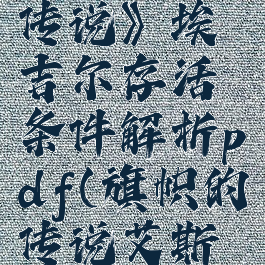 传说》埃
吉尔存活
条件解析p
df(旗帜的
传说艾斯